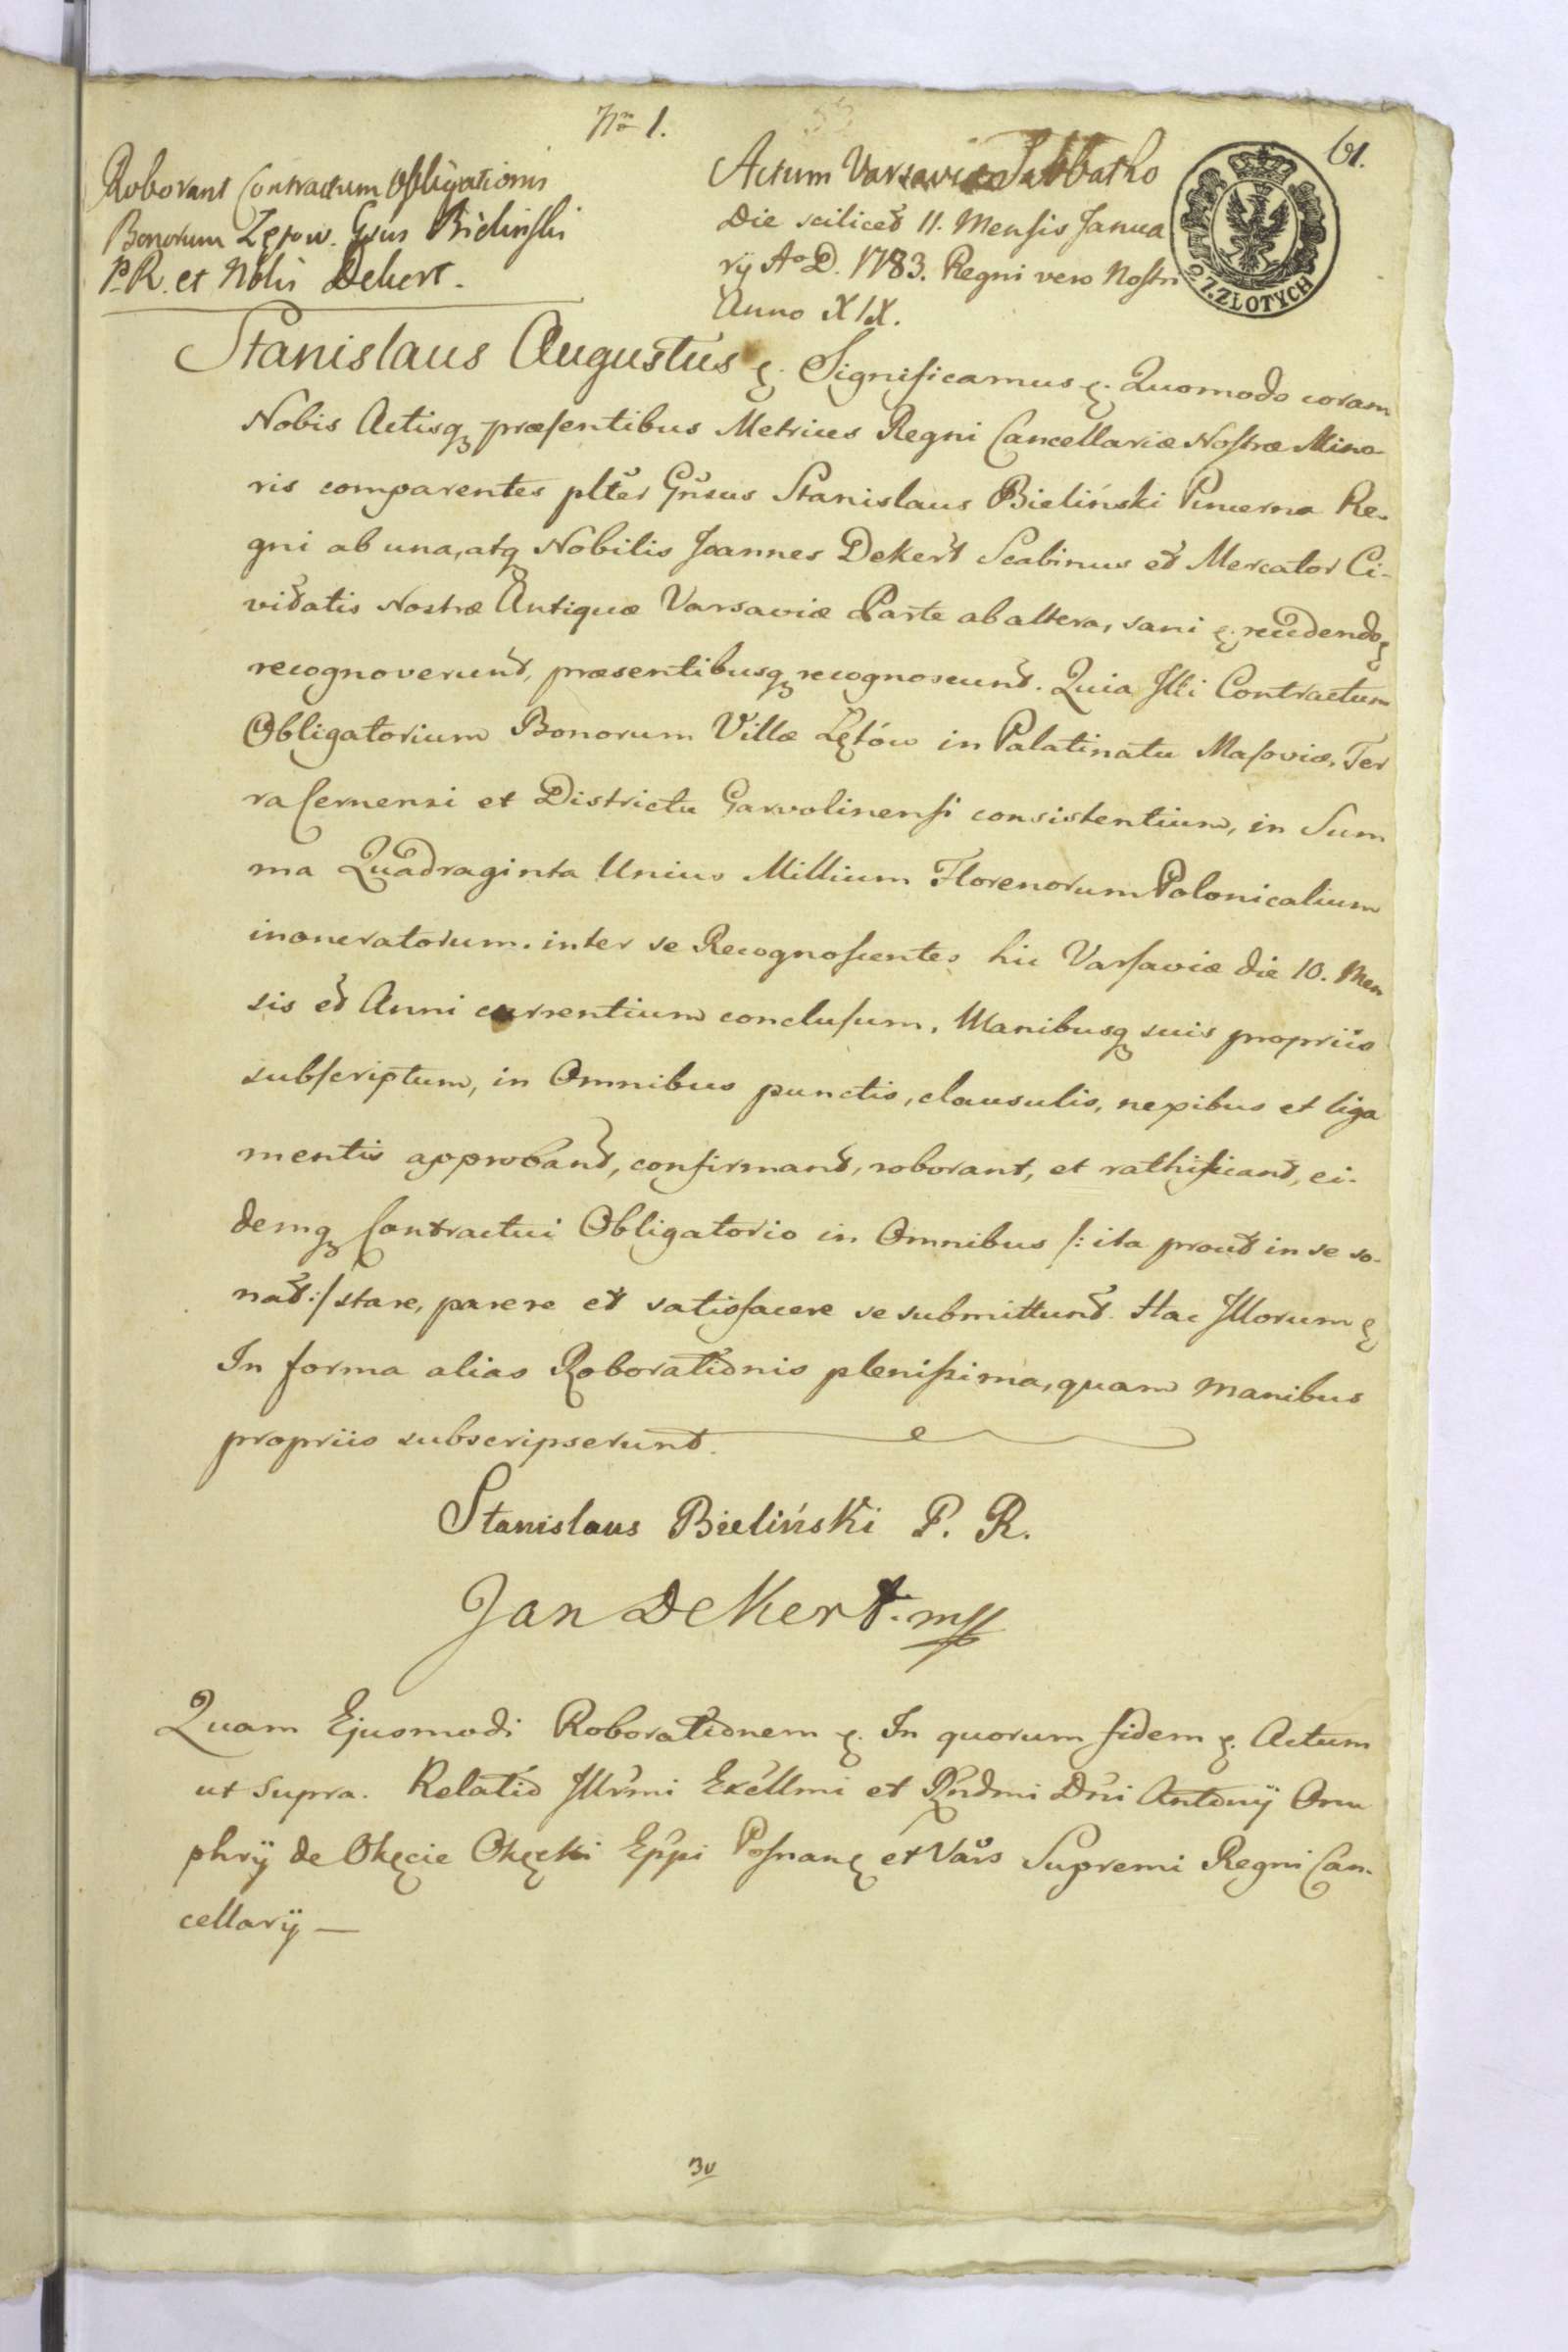 Nro 1.
61.
Roborant Contractum Obligationis
Bonorum Lętow. Gsus Bieliński
P. R. et Nblis Dekert.
Actum Varsaviæ Sabbatho
Die scilicet 11. Mensis Janua
rÿ Ao D. 1783. Regni vero Nostri
Anno XIX.
7. ZŁOTYCH
Stanislaus Augustus &. Significamus &. Quomodo coram
Nobis Actisq præsentibus Metrices Regni Cancellariæ Nostræ Mino-
ris comparentes plter Gnsus Stanislaus Bieliński Pincerna Re-
gni ab una, atq Nobilis Joannes Dekert Scabinus et Mercator Ci-
vitatis Nostræ Antiquæ Varsaviæ Parte ab altera, sani &. recedendo &
recognoverunt, præsentibusq recognoscunt. Quia Illi Contractum
Obligatorium Bonorum Villæ Lętów in Palatinatu Masoviæ, Ter
ra Cernensi et Districtu Garvolinensi consistentium, in Sum
ma Quadraginta Unius Millium Florenorum Polonicalium
inoneratorum. inter se Recognoscentes hic Varsaviæ die 10. Men
sis et Anni currentium conclusum, Manibusq suis propriis
subscriptum, in Omnibus punctis, clausulis, nexibus et liga
mentis approbant, confirmant, roborant, et rathificant, ei-
demq Contractui Obligatorio in Omnibus /: ita prout in se so-
nat :/ stare, parere et satisfacere se submittunt. Hac Illorum &
In forma alias Roborationis plenissima, quam Manibus
propriis subscripserunt.
Stanislaus Bieliński P. R.
Jan Dekert. mp
Quam Ejusmodi Roborationem &. In quorum fidem &. Actum
ut supra. Relatio Illrmi Excllmi et Rndmi Dni Antonÿ Onu
phrÿ de Okęcie Okęcki Eppi Posnan & et Vars Supremi Regni Can-
cellarÿ —